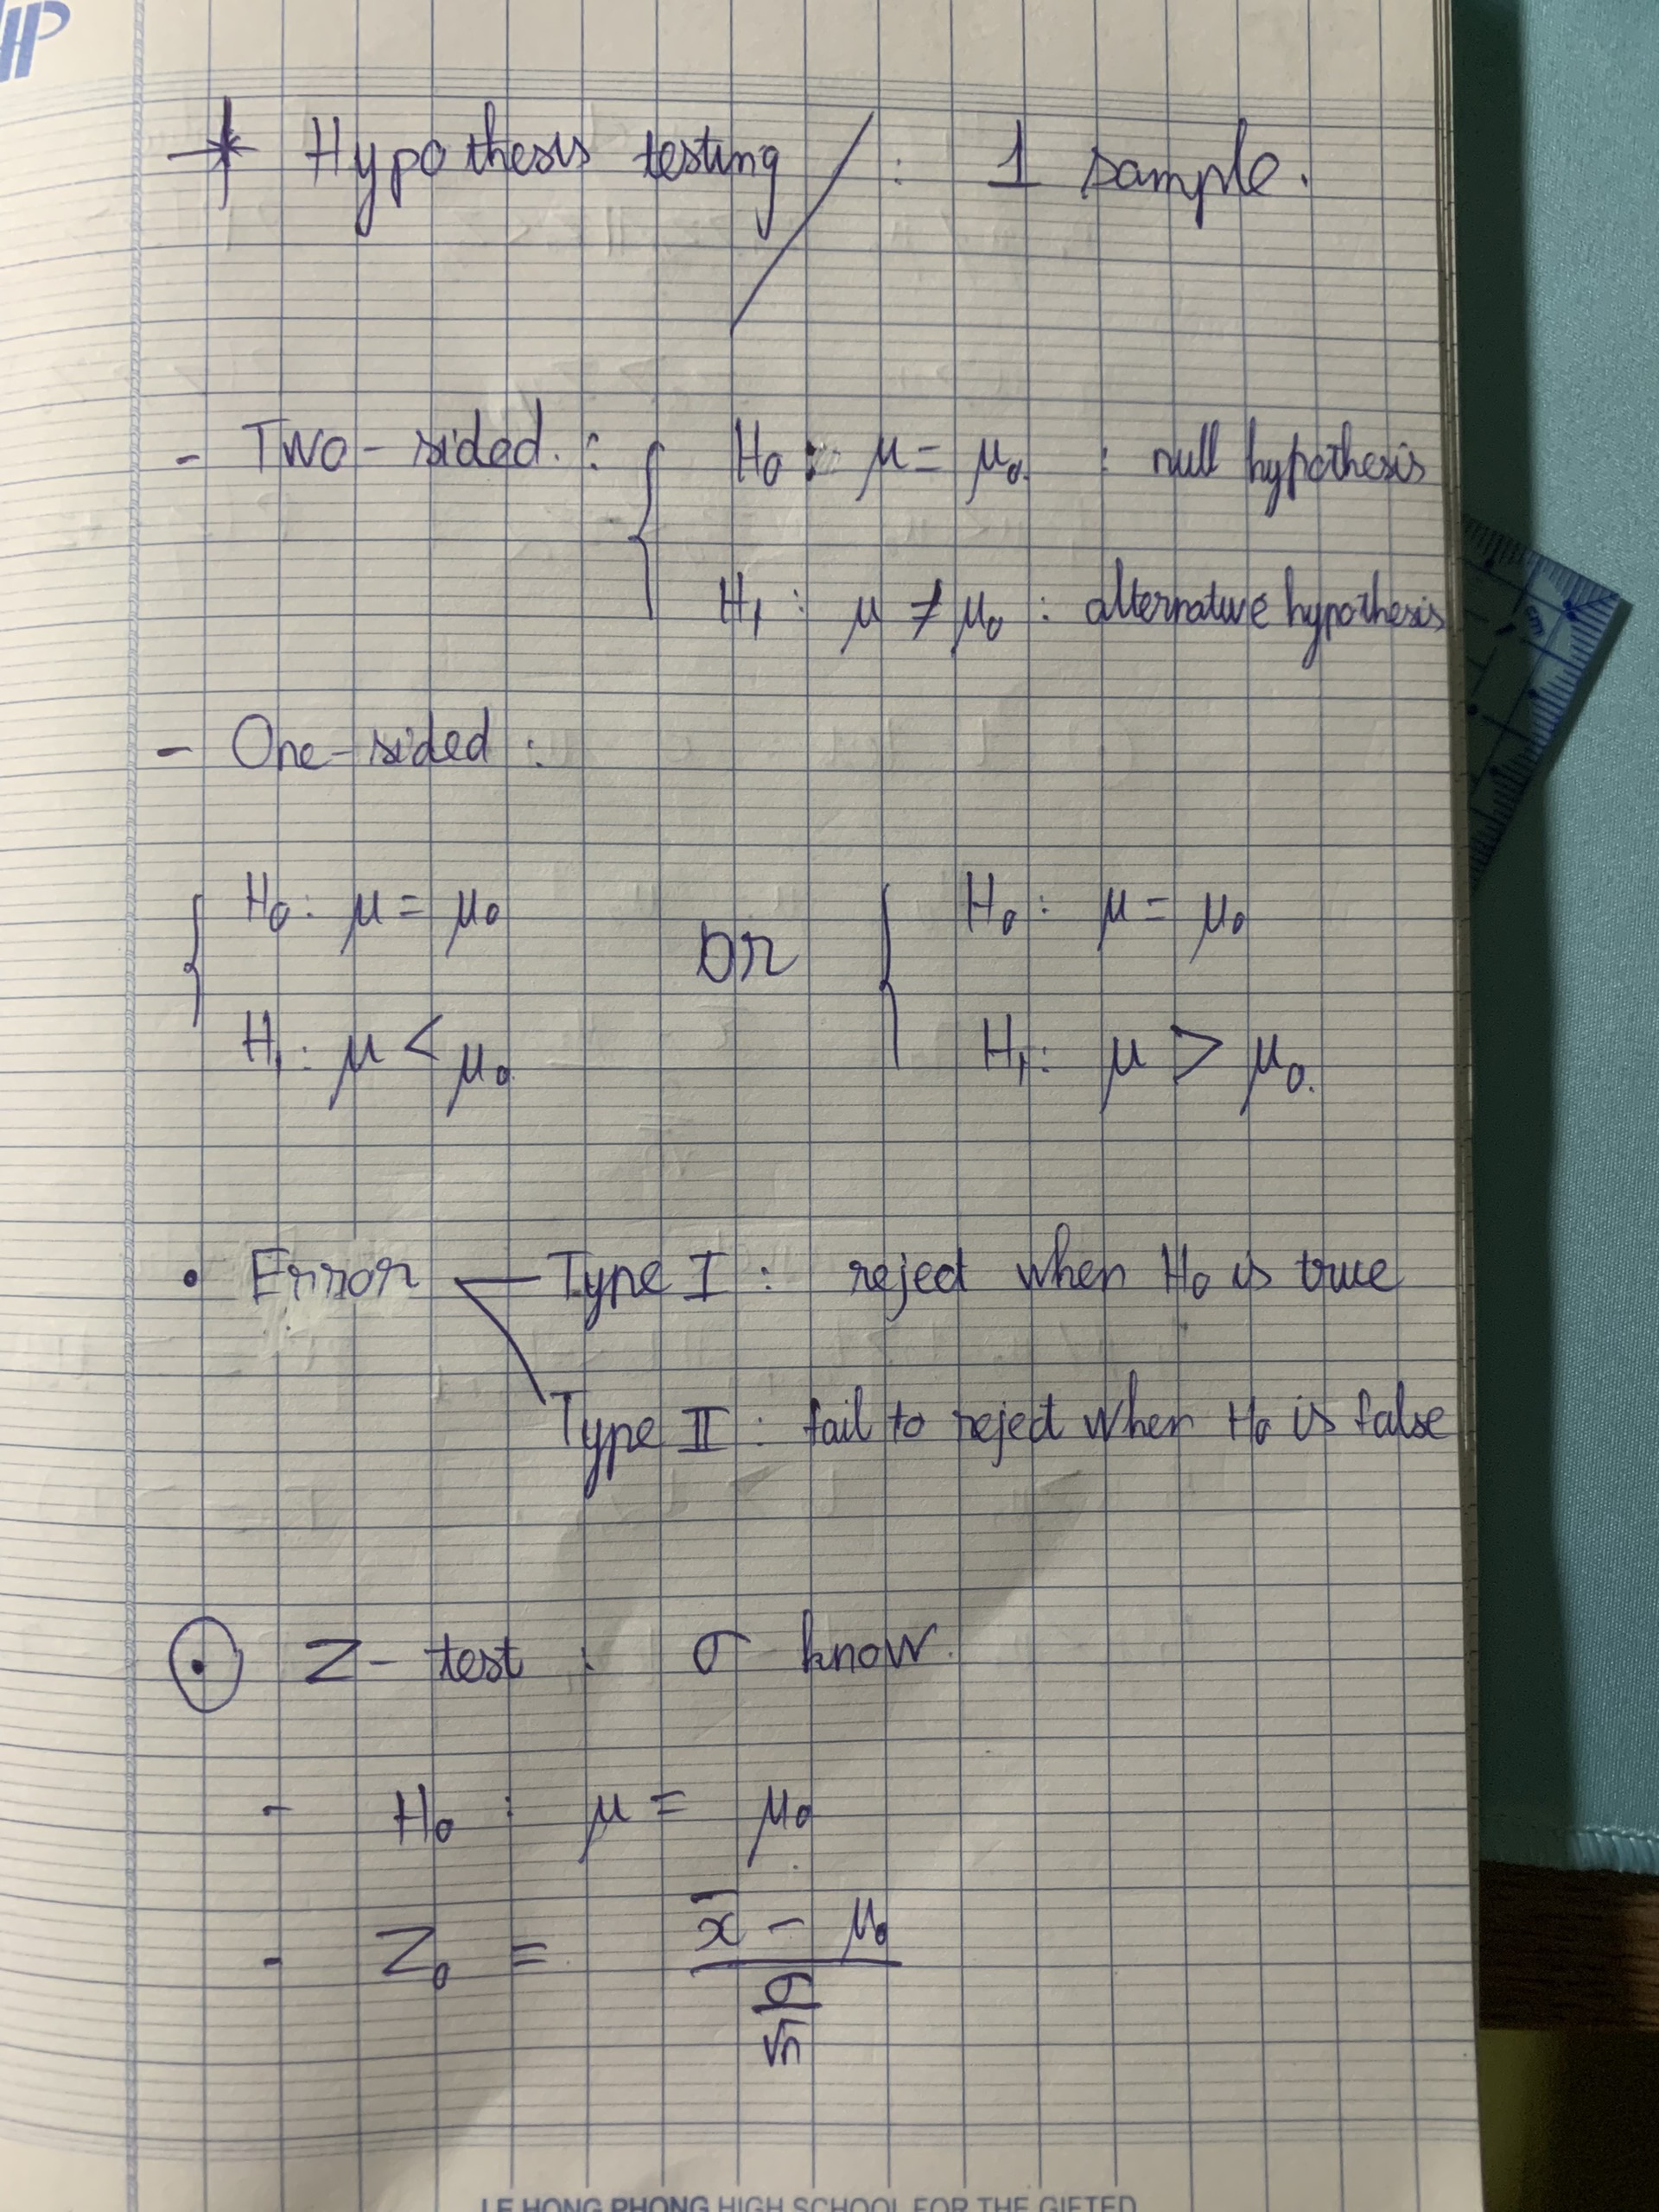 HP
* Hypothesis testing / : 1 sample.
- Two-sided. : { H₀ : μ = μ₀. : null hypothesis
H₁ : μ ≠ μ₀ : alternative hypothesis
- One-sided :
{ H₀ : μ = μ₀ or { H₀ : μ = μ₀
H₁ : μ < μ₀. H₁ : μ > μ₀.
• Error Type I : reject when H₀ is true
Type II : fail to reject when H₀ is false
⊙ Z-test : σ know.
- H₀ : μ = μ₀
- Z₀ = (x̄ - μ₀) / (σ/√n)
LE HONG PHONG HIGH SCHOOL FOR THE GIFTED